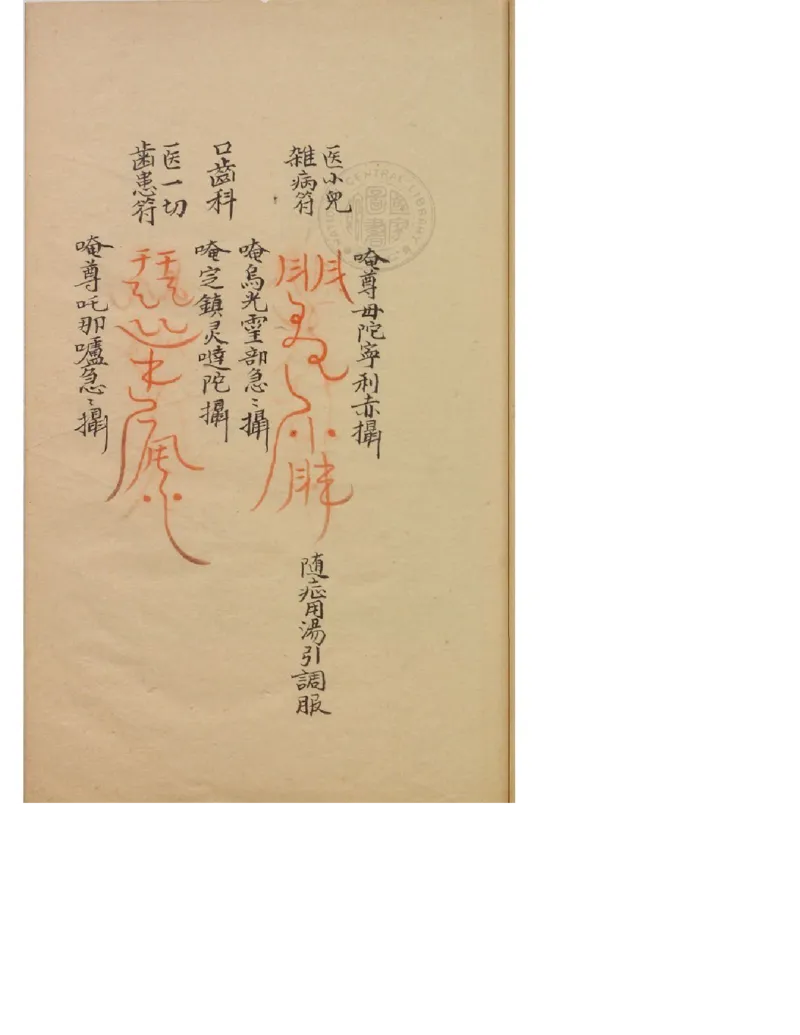 医小兒
雜病符
唵尊毋陀寧利赤攝
唵烏光霊部急〻攝
随症用湯引調服
口齒科
医一切
齒患符
唵定鎮灵噠陀攝
唵尊吒那嚧急〻攝
CENTRAL LIBRARY